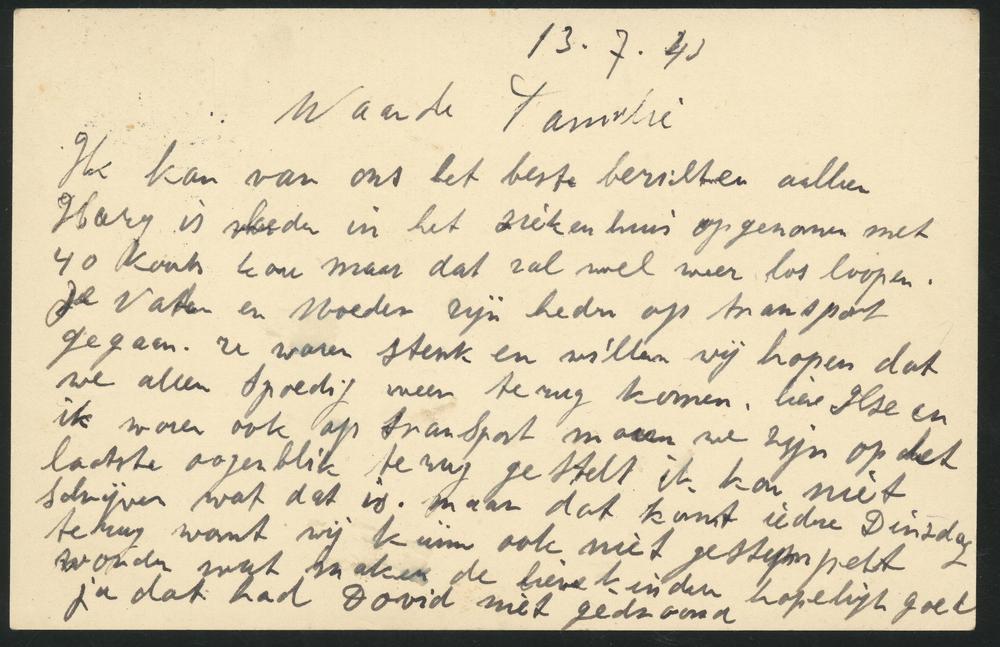 13. 7. 43
Waarde Familie
Ik kan van ons het beste berichten allen
Harry is heden in het ziekenhuis opgenomen met
40 koorts maar dat zal wel weer los loopen.
Je Vader en Moeder zijn heden op transport
gegaan. ze waren sterk en willen wij hopen dat
we allen spoedig weer terug komen. liewe Ilse en
ik waren ook op transport maar we zijn op het
laatste oogenblik terug gestelt ik kan niet
schrijven wat dat is. maar dat komt iedre Dinsdag
terug want wij künn ook niet gestempelt
worden wat maken de lieve kinder hopelijk goet
ja dat had David niet gedroomd